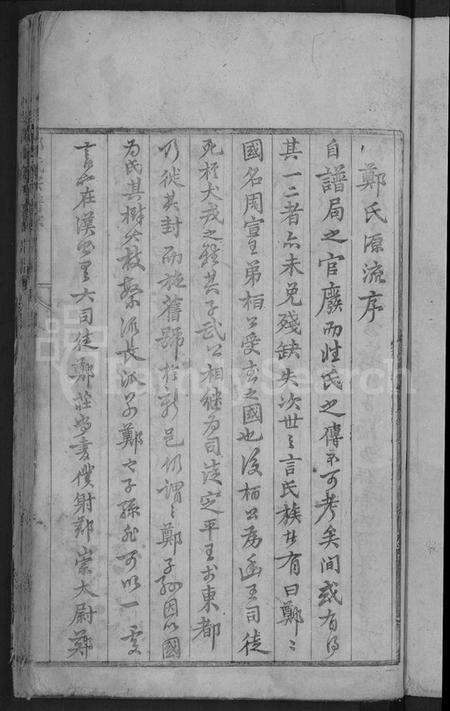 鄭氏源流序
自譜局之官廢而姓氏之傳不可考矣間或有得
其一二者亦未免殘缺失次世之言氏族者有曰鄭之
國名周宣王弟桓公受封之國也後桓公為幽王司徒
死於犬戎之難其子武公相繼為司徒定平王於東都
乃徙其封而施舊號於新邑仍謂之鄭子孫因以國
為氏其樹大枝繁源長派分鄭之子孫非可以一二
言也在漢 大司徒鄭莊尚書僕射鄭崇大尉鄭
FamilySearch